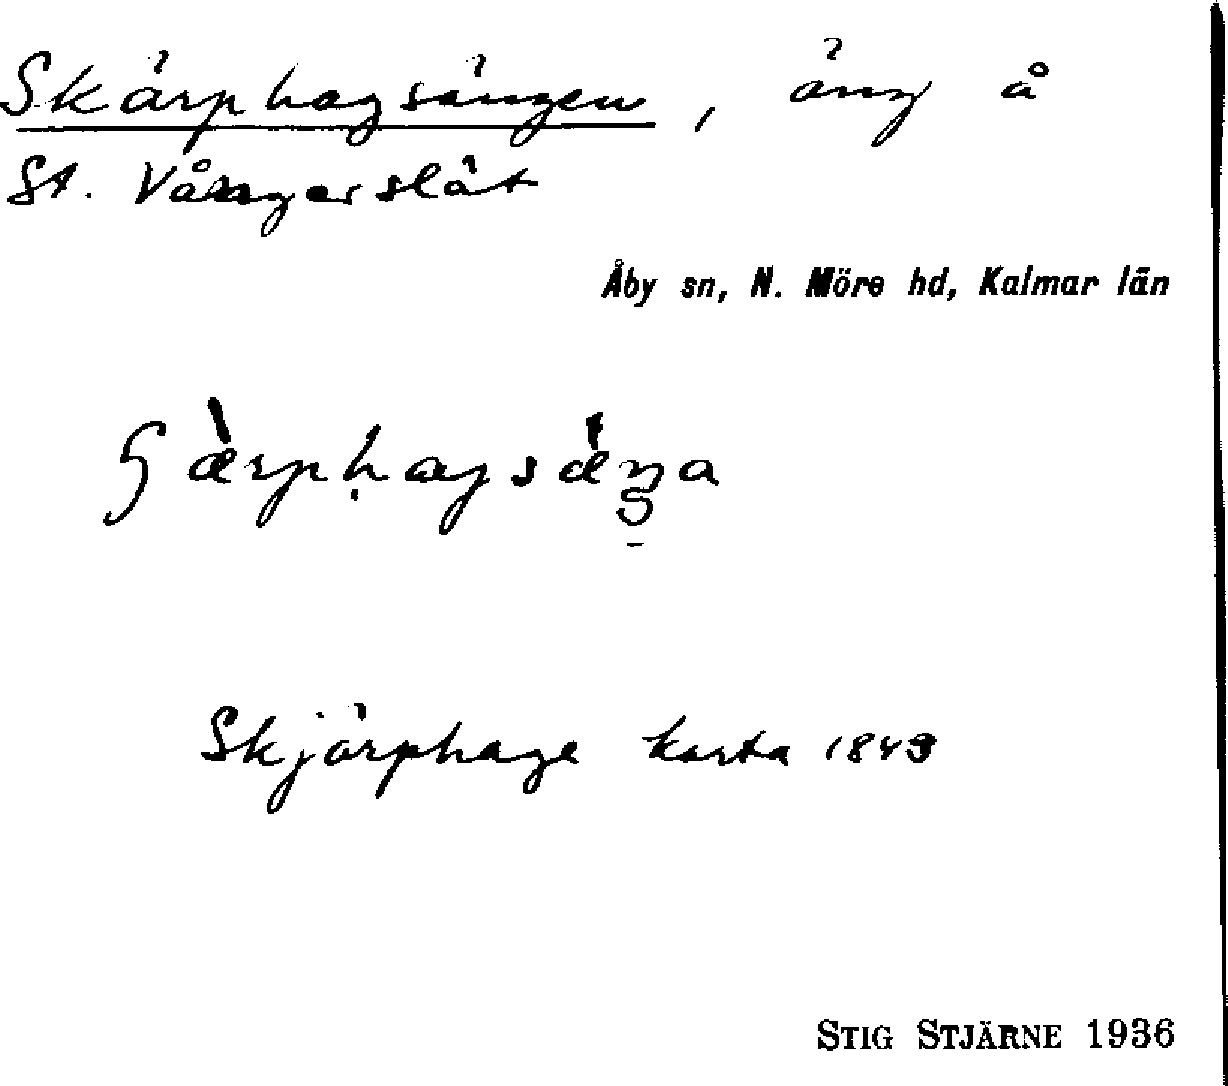 Skärphagsängen, äng å
St. Vångerslät
Åby sn, N. Möre hd, Kalmar län
Skjärphage karta 1843
STIG STJÄRNE 1936